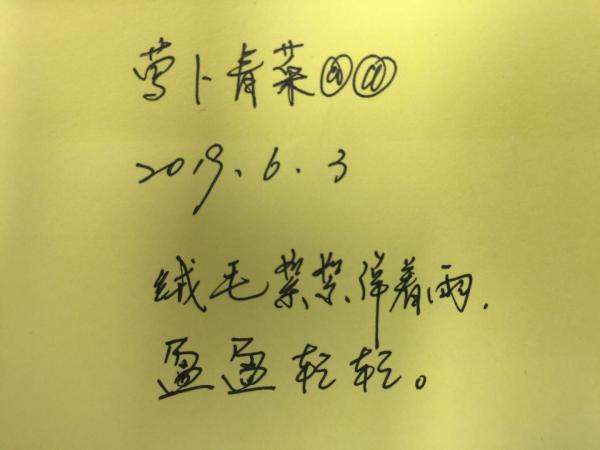 萝卜青菜@@
2019.6.3
绒毛絮絮弹着雨,
盈盈轻轻。